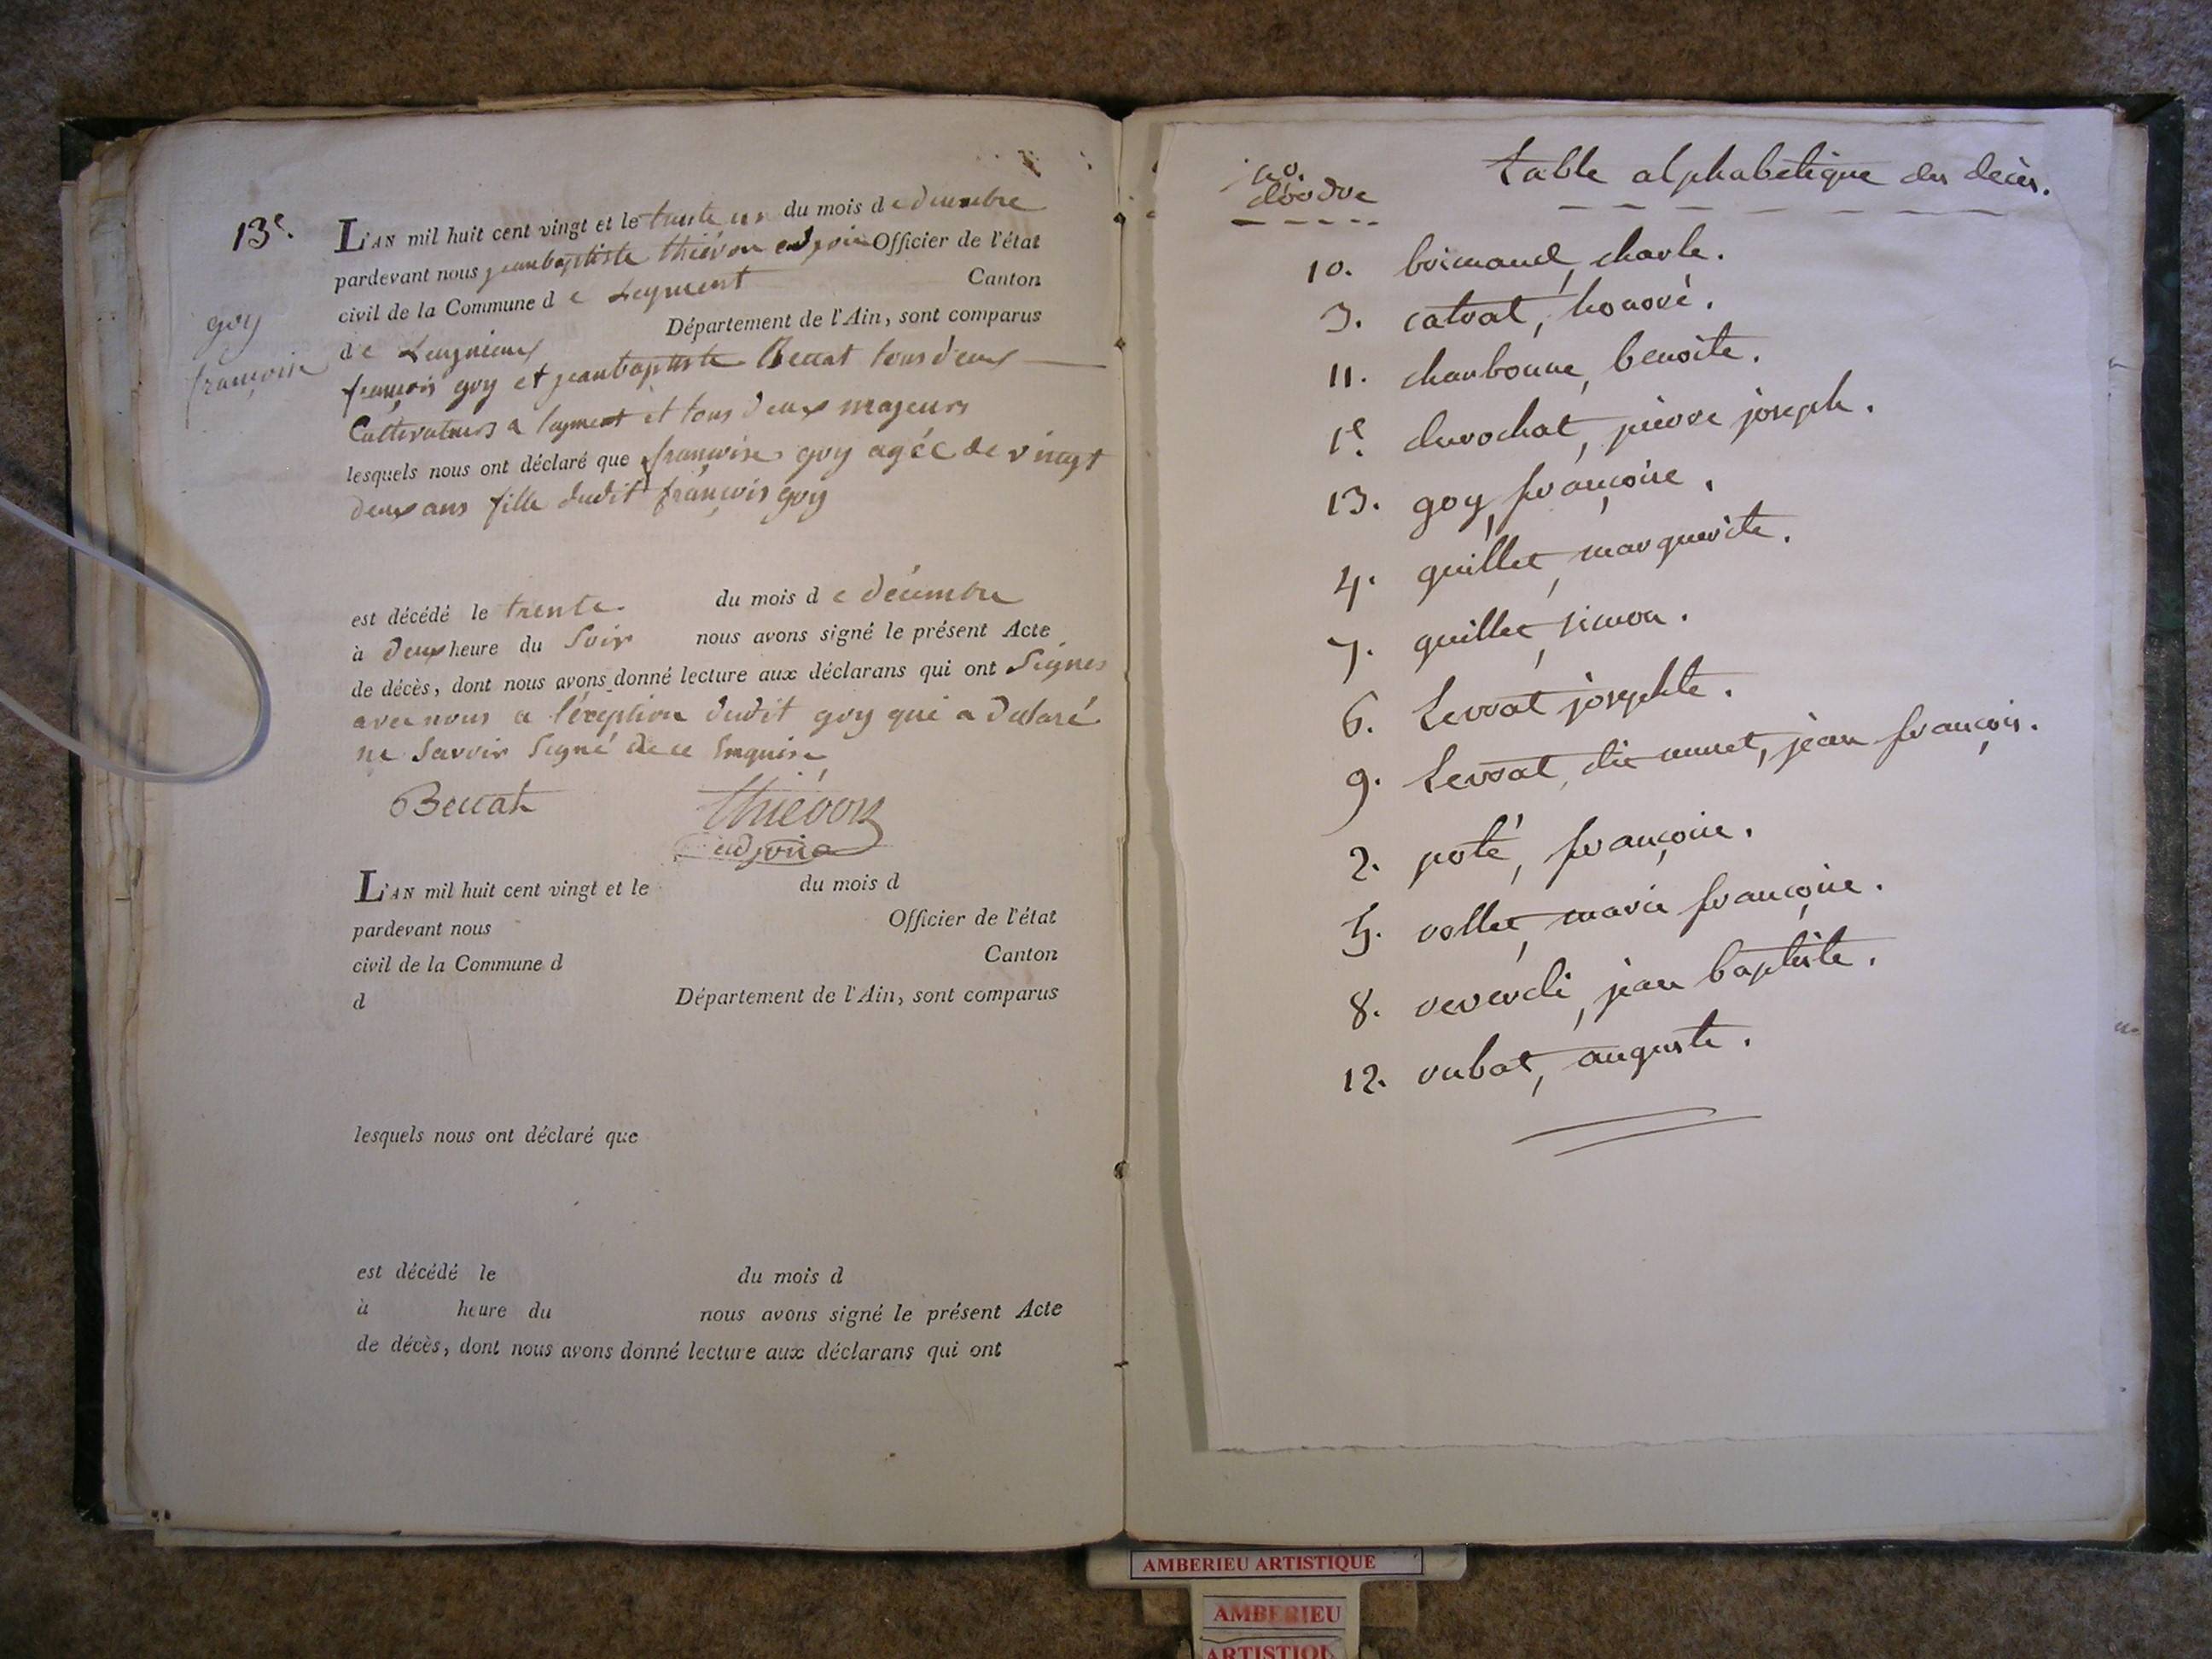 13e.
goy
françoise
L'AN mil huit cent vingt et le trente un du mois de decembre
pardevant nous jeanbaptiste thiévon adjoin Officier de l'état
civil de la Commune de Leyment Canton
de Lagnieux Département de l'Ain, sont comparus
françois goy et jeanbaptiste Beccat tous deux
Cultivateurs a layment et tous deux majeurs
lesquels nous ont déclaré que françoise goy agée de vingt
deux ans fille dudit françois goy
est décédé le trente du mois de décembre
à deux heure du Soir nous avons signé le présent Acte
de décès, dont nous avons donné lecture aux déclarans qui ont Signés
avec nous a l'éxeption dudit goy qui a déclaré
ne Savoir Signé de ce Enquise
Beccat thiévon
adjoin
L'AN mil huit cent vingt et le du mois d
pardevant nous Officier de l'état
civil de la Commune d Canton
d Département de l'Ain, sont comparus
lesquels nous ont déclaré que
est décédé le du mois d
à heure du nous avons signé le présent Acte
de décès, dont nous avons donné lecture aux déclarans qui ont
no. table alphabétique des décès.
d'ordre
10. boimand, charle.
3. catrat, honoré.
11. charbonne, benoite.
1e. durochat, pierre joseph.
13. goy, françoise.
4. guillet, marguerite.
7. guillet, simon.
6. Levrat josephte.
9. Levrat, dit muret, jean françois.
2. poté, françoise.
5. rollet, marie françoise.
8. reverdi, jean baptiste.
12. rubat, auguste.
AMBERIEU ARTISTIQUE
AMBERIEU